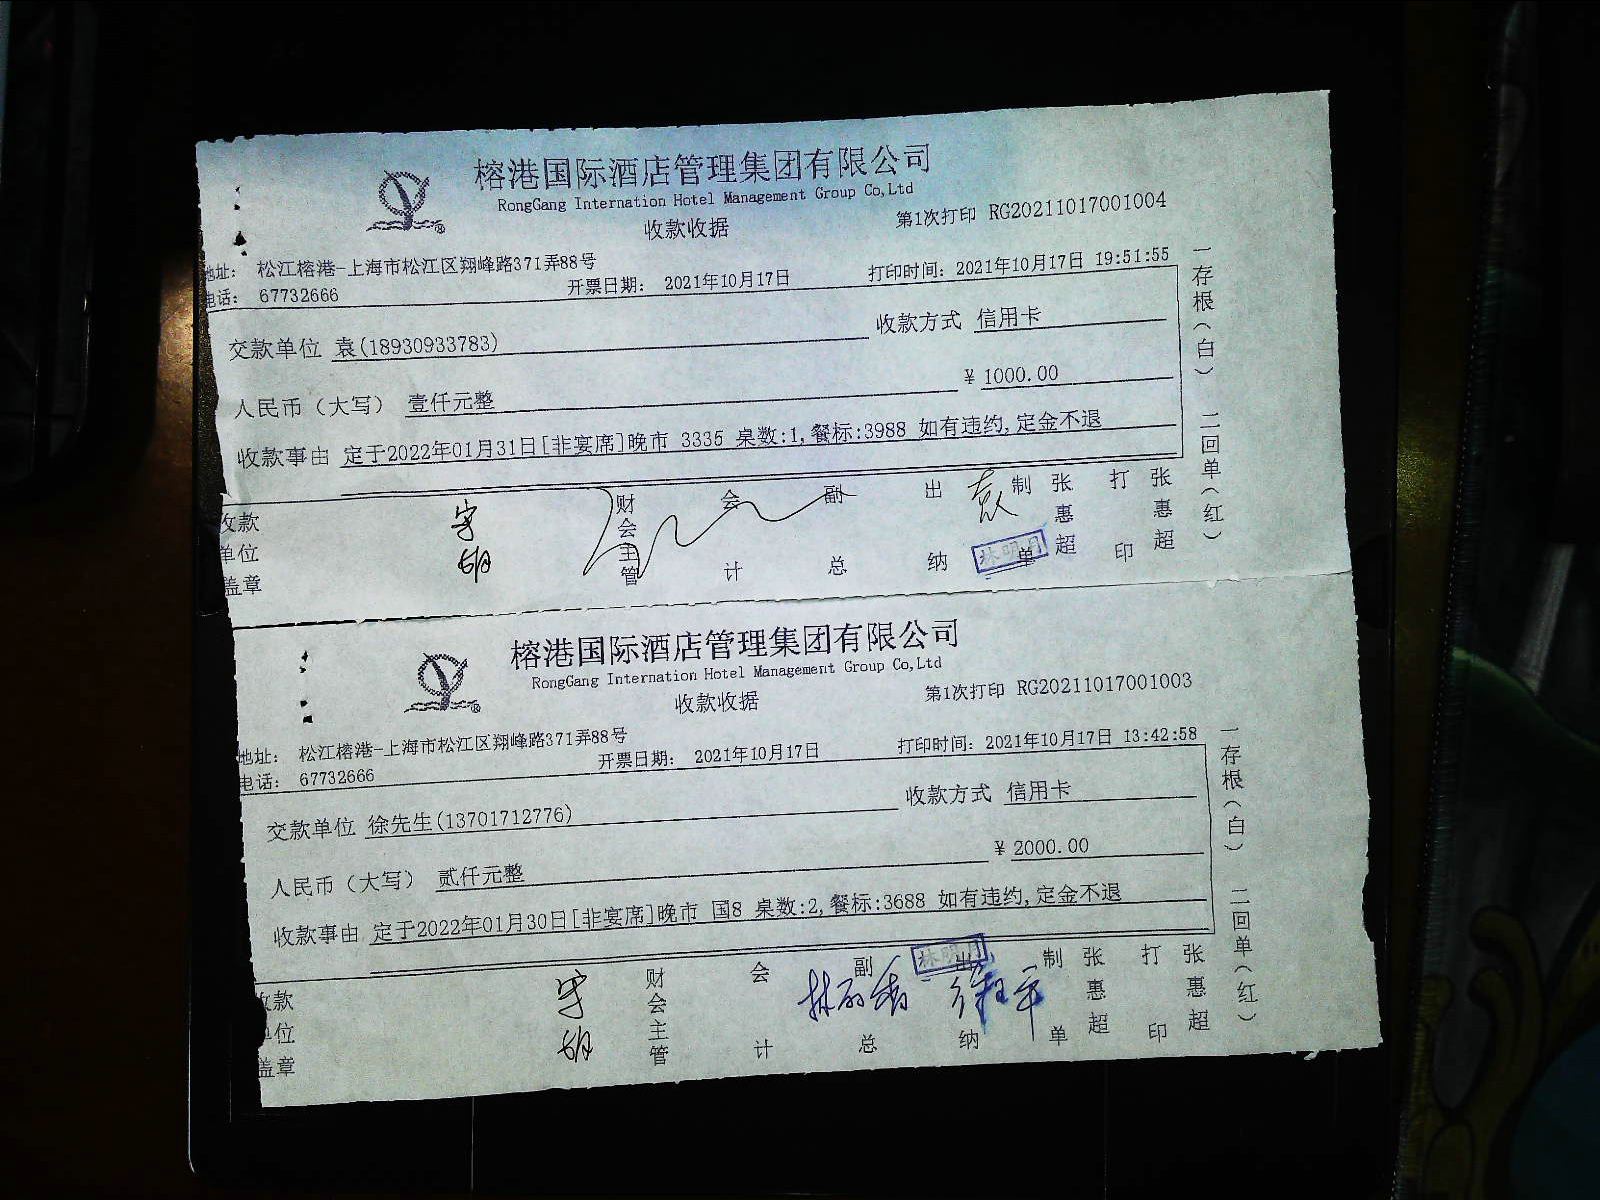 榕港国际酒店管理集团有限公司
RongGang Internation Hotel Management Group Co,Ltd
收款收据
第1次打印 RG20211017001004
地址: 松江榕港-上海市松江区翔峰路371弄88号
电话: 67732666
开票日期: 2021年10月17日
打印时间: 2021年10月17日 19:51:55
交款单位 袁(18930933783)
收款方式 信用卡
人民币（大写） 壹仟元整
¥ 1000.00
收款事由 定于2022年01月31日[非宴席]晚市 3335 桌数:1,餐标:3988 如有违约,定金不退
收款单位盖章
财会主管
会计
副总
出纳
制单
张惠超
打印
张惠超
袁
林明月
一存根(白) 二回单(红)
榕港国际酒店管理集团有限公司
RongGang Internation Hotel Management Group Co,Ltd
收款收据
第1次打印 RG20211017001003
地址: 松江榕港-上海市松江区翔峰路371弄88号
电话: 67732666
开票日期: 2021年10月17日
打印时间: 2021年10月17日 13:42:58
交款单位 徐先生(13701712776)
收款方式 信用卡
人民币（大写） 贰仟元整
¥ 2000.00
收款事由 定于2022年01月30日[非宴席]晚市 国8 桌数:2,餐标:3688 如有违约,定金不退
收款单位盖章
财会主管
会计
副总
出纳
制单
张惠超
打印
张惠超
林明月
一存根(白) 二回单(红)